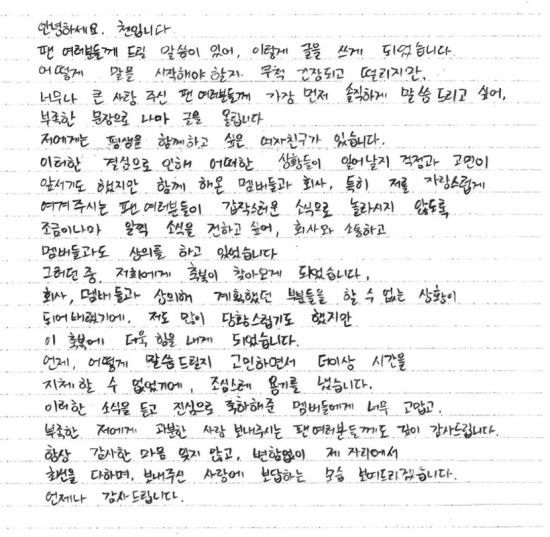 안녕하세요. 첸입니다
팬 여러분들께 드릴 말씀이 있어, 이렇게 글을 쓰게 되었습니다.
어떻게 말문 시작해야 할지 무척 긴장되고 떨리지만,
너무나 큰 사랑 주신 팬 여러분들께 가장 먼저 솔직하게 말씀드리고 싶어,
부족한 문장으로 나마 글을 올립니다
저에게는 평생을 함께하고 싶은 여자친구가 있습니다.
이러한 결심으로 인해 어떠한 상황들이 일어날지 걱정과 고민이
앞서기도 했지만 함께 해온 멤버들과 회사, 특히 저를 자랑스럽게
여겨주시는 팬 여러분들이 갑작스러운 소식으로 놀라시지 않도록
조금이나마 일찍 소식을 전하고 싶어, 회사와 소통하고
멤버들과도 상의를 하고 있었습니다
그러던 중, 저희에게 축복이 찾아오게 되었습니다.
회사, 멤버들과 상의해 계획했던 부분들을 할 수 없는 상황이
되어버렸기에, 저도 많이 당황스럽기도 했지만
이 축복에 더욱 힘을 내게 되었습니다.
언제, 어떻게 말씀드릴지 고민하면서 더이상 시간을
지체 할 수 없었기에, 조심스레 용기를 냈습니다.
이러한 소식을 듣고 진심으로 축하해준 멤버들에게 너무 고맙고,
부족한 저에게 과분한 사랑 보내주시는 팬 여러분들께도 깊이 감사드립니다.
항상 감사한 마음 잊지 않고, 변함없이 제 자리에서
최선을 다하며, 보내주신 사랑에 보답하는 모습 보여드리겠습니다.
언제나 감사드립니다.